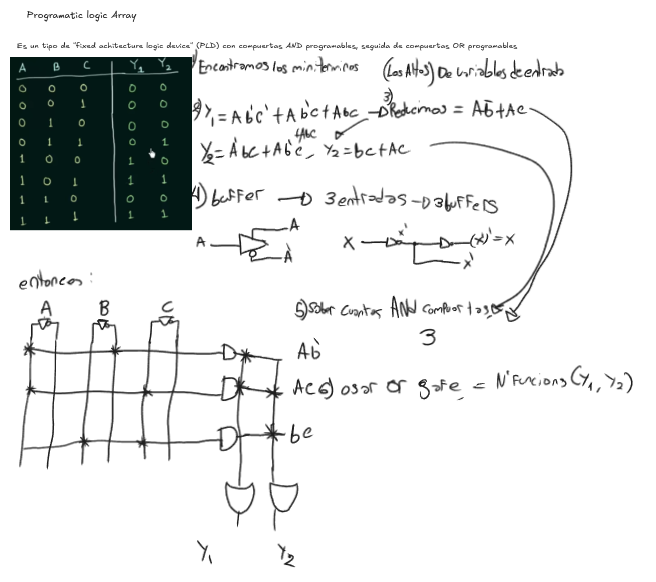 Programatic logic Array
Es un tipo de "fixed achitecture logic device" (PLD) con compuertas AND programables, seguida de compuertas OR programables
A B C Y1 Y2
0 0 0 0 0
0 0 1 0 0
0 1 0 0 0
0 1 1 0 1
1 0 0 1 0
1 0 1 1 1
1 1 0 0 0
1 1 1 1 1
Encontramos los minterminos (Los Altos) De variables de entrada
2) Y1 = Ab'c' + Ab'c + Abc → 3) Reducimos = Ab̄ + Ac
Y2 = A'bc + Ab'c + Abc, Y2 = bc + AC
4) buffer → 3 entradas → 3 buffers
A A A'
X x' (x')' = x x'
entonces:
A B C
5) Saber cuantas AND compuertas
3
Ab'
AC 6) usar or gate = N°Funcions (Y1, Y2)
bc
Y1 Y2